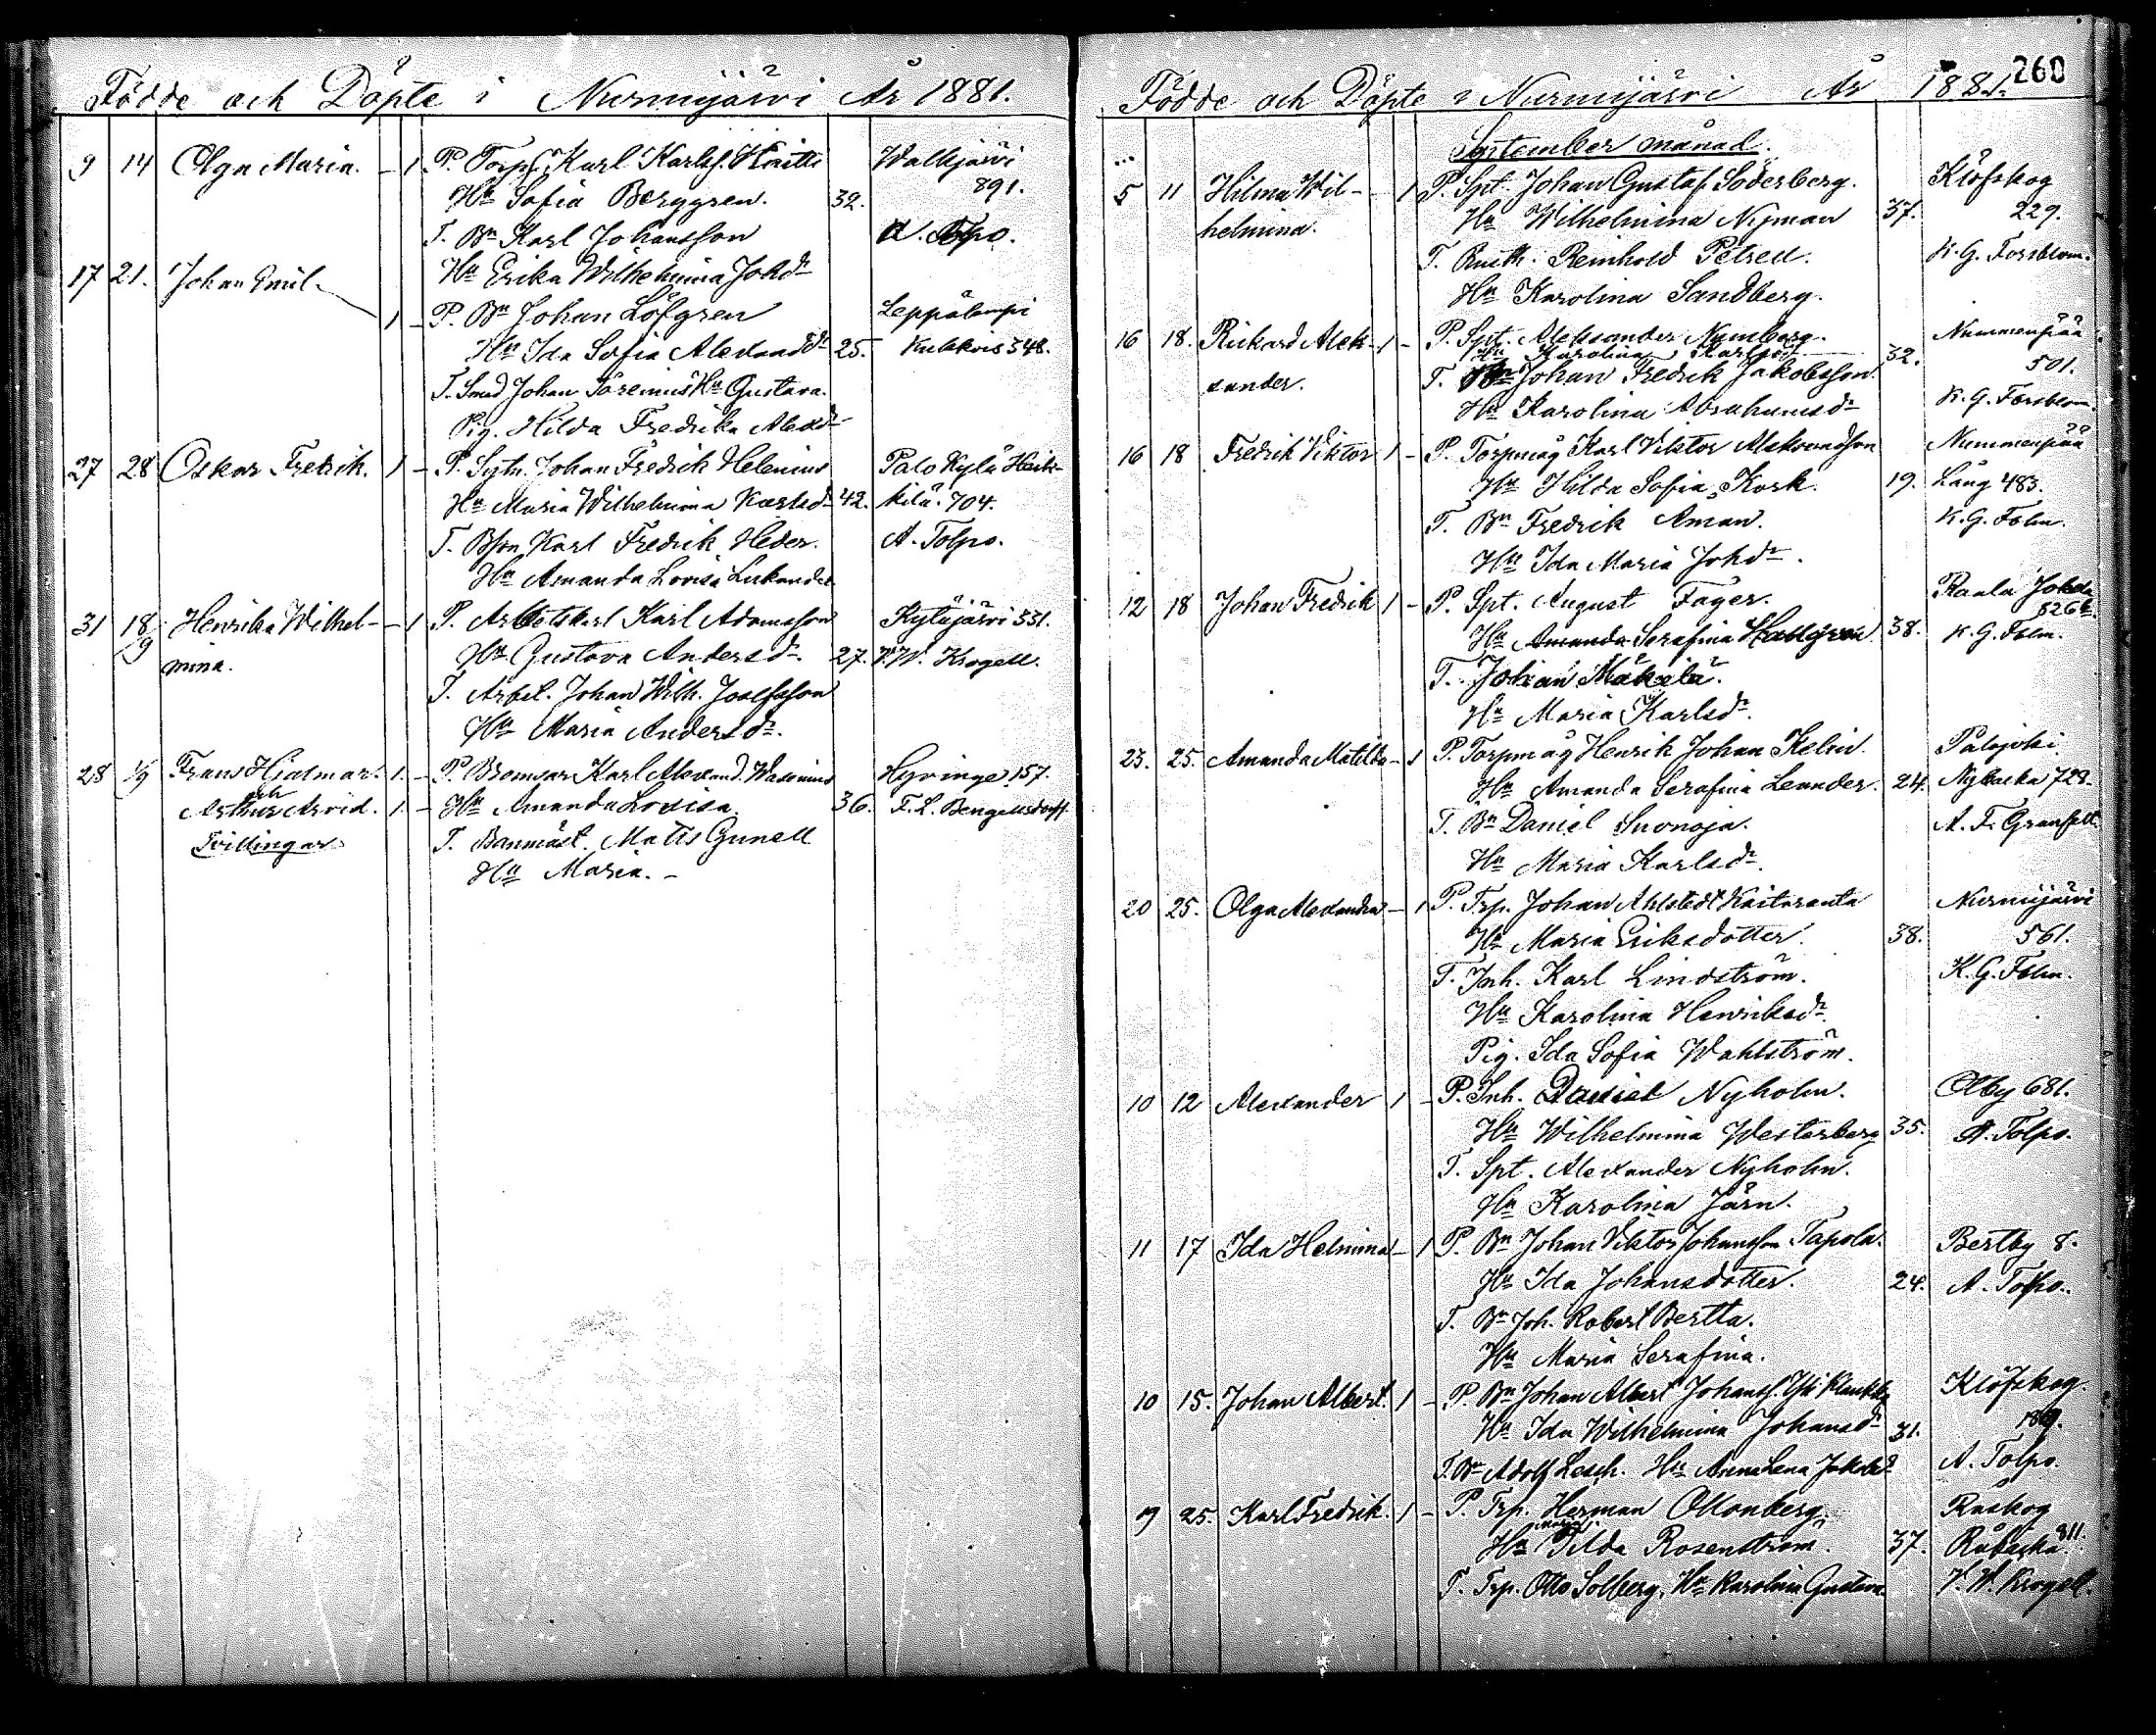 Födde och Döpte i Nurmijärvi År 1881.
9 14 Olga Maria. – 1 P. Torp. Karl Karlsf. Haitti Walkjärvi
Hu Sofia Berggren. 32. 891.
T. Bn Karl Johansson A. Tolpo.
Hu Erika Wilhelmina Johdr
17 21. Johan Emil
1 – P. Bn Johan Löfgren Leppälampi
Hu Ida Sofia Alexanddr 25. 348.
T. Smed Johan Hu Gustava.
Pig. Hilda Fredrika Alexdr
27 28 Oskar Fredrik. 1 – P. Sytn. Johan Fredrik Helenius Palo Kylä
Hu Maria Wilhelmina Karlsdr 42. kilä. 704.
T. Bson Karl Fredrik Heder. A. Tolpo.
Hu Amanda Lovisa
31 18/9 Henrika Wilhel- – 1 P. Arbetskarl Karl Adamsson Kytäjärvi 331.
mina. Hu Gustava Andersdr 27. V. W. Krogell.
T. Arbet. Johan Wilh. Josefsson
Hu Maria Andersdr.
28 1/9 Frans Hjalmar. 1. – P. Bromsar Karl Alexand. Wasenius Hyvinge 157.
och
Arthur Arvid. 1. – Hu Amanda Lovisa 36. F. L. Bengelsdorff.
Tvillingar. T. Banmäst. Matts Gunell
Hu Maria. –
260
Födde och Döpte i Nurmijärvi År 1881.
September månad.
5 11 Hilma Wil- – 1 P. Spt. Johan Gustaf Söderberg. Klöfskog
helmina. Hu Wilhelmina Nyman 37. 229.
T. Reinhold Petrell. K. G. Forsblom.
Hu Karolina Sandberg.
16 18. Rickard Alek- 1 – P. Spt. Aleksander Nymberg. Nummenpää
Hu Karolina Karlsdr 32.
xander. T. Johan Fredrik Jakobsson. 501.
Hu Karolina Abrahamsdr K. G. Forsblom.
16 18 Fredrik Viktor 1 – P. Torpmåg Karl Viktor Alexandsson Nummenpää
Hu Hilda Sofia Kosk. 19. Lång 483.
T. Bn Fredrik Aman. K. G. Fslm.
Hu Ida Maria Johdr.
12 18 Johan Fredrik 1 – P. Spt. August Fager. Raala
Hu Amanda Serafina Hallgren 38. 826 K. G. Fslm.
T. Johan Mäkelä.
Hu Maria Karlsdr.
23. 25. Amanda Matilda – 1 P. Torpmåg Henrik Johan Kelin. Palojoki
Hu Amanda Serafina Leander. 24. Nybacka 728.
T. Bn Daniel Suonoja. A. F. Granfelt.
Hu Maria Karlsdr.
20 25. Olga Alexandra – 1 P. Trp. Johan Ahlstedt Kaitaranta Nurmijärvi
Hu Maria Eriksdotter. 38. 561.
T. Inh. Karl Lindström. K. G. Fslm.
Hu Karolina Henriksdr.
Pig. Ida Sofia Wahlström.
10 12 Alexander 1 – P. Inh. Daniel Nyholm. Olby 681.
Hu Wilhelmina Westerberg 35. A. Tolpo.
T. Spt. Alexander Nyholm.
Hu Karolina Järn.
11 17 Ida Helmina – 1 P. Bn Johan Viktor Johansson Tapola. Bertby 8.
Hu Ida Johansdotter. 24. A. Tolpo.
T. Bn Joh. Robert Bertta.
Hu Maria Serafina.
10 15. Johan Albert. 1 – P. Bn Johan Albert Johansf. Yli Klaukka Klöfskog.
Hu Ida Wilhelmina Johansdr 31.
T. Bn Adolf Lesch. Hu Anna Lena Jakobsdr A. Tolpo.
19 25. Karl Fredrik. 1 – P. Trp. Herman Ottonberg. Råskog
Hu Tilda Rosenström. 37. Råbacka 811.
T. Trp. Otto Solberg, Hu Karolina Gustava V. W. Krogell.